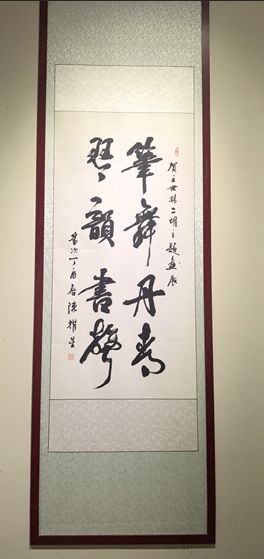 賀王世二胡主題畫展
筆舞丹青
琴韻書聲
歲次丁酉春陳耀星